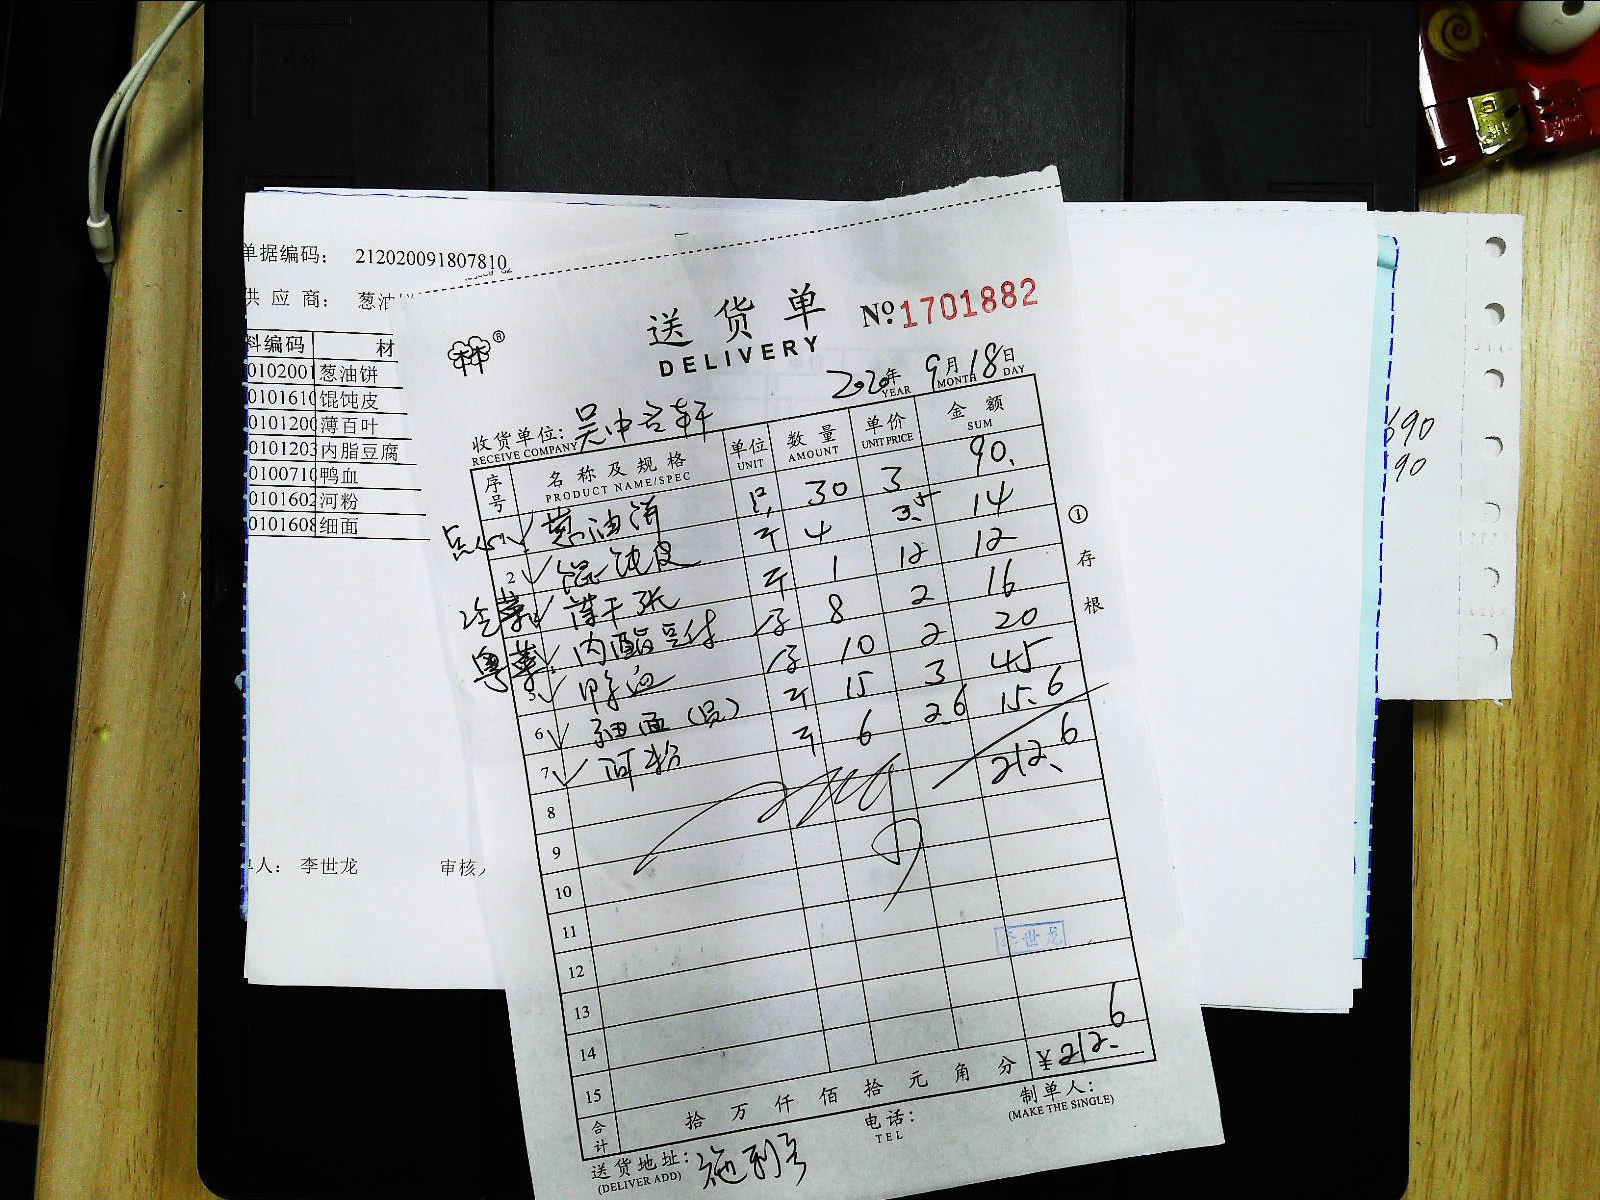 单据编码： 212020091807810
供应商： 葱油
料编码 材
0102001 葱油饼
0101610 馄饨皮
0101200 薄百叶
0101203 内脂豆腐
0100710 鸭血
0101602 河粉
0101608 细面
人： 李世龙 审核人
690
90
送货单 No 1701882
DELIVERY
2020年 9月 18日
YEAR MONTH DAY
收货单位：
RECEIVE COMPANY
序号 名称及规格 单位 数量 单价 金额
PRODUCT NAME/SPEC UNIT AMOUNT UNIT PRICE SUM
点心 葱油饼 只 30 3 90.
2 馄饨皮 斤 4 3.5 14
冷菜 薄千张 斤 1 12 12
粤菜 内酯豆付 8 2 16
5 鸭血 10 2 20
6 细面(圆) 斤 15 3 45
7 河粉 斤 6 2.6 15.6
8 212.6
9
10
11
12 李世龙
13
14
15
合计 拾 万 仟 佰 拾 元 角 分 ¥212.6
送货地址：
(DELIVER ADD)
电话：
TEL
制单人：
(MAKE THE SINGLE)
①存根